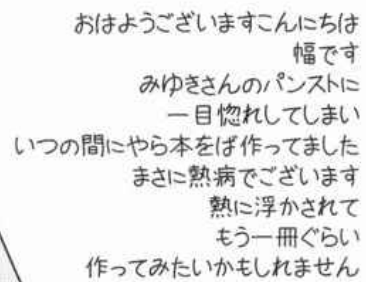 おはようございますこんにちは
幅です
みゆきさんのパンストに
一目惚れしてしまい
いつの間にやら本をば作ってました
まさに熱病でございます
熱に浮かされて
もう一冊ぐらい
作ってみたいかもしれません